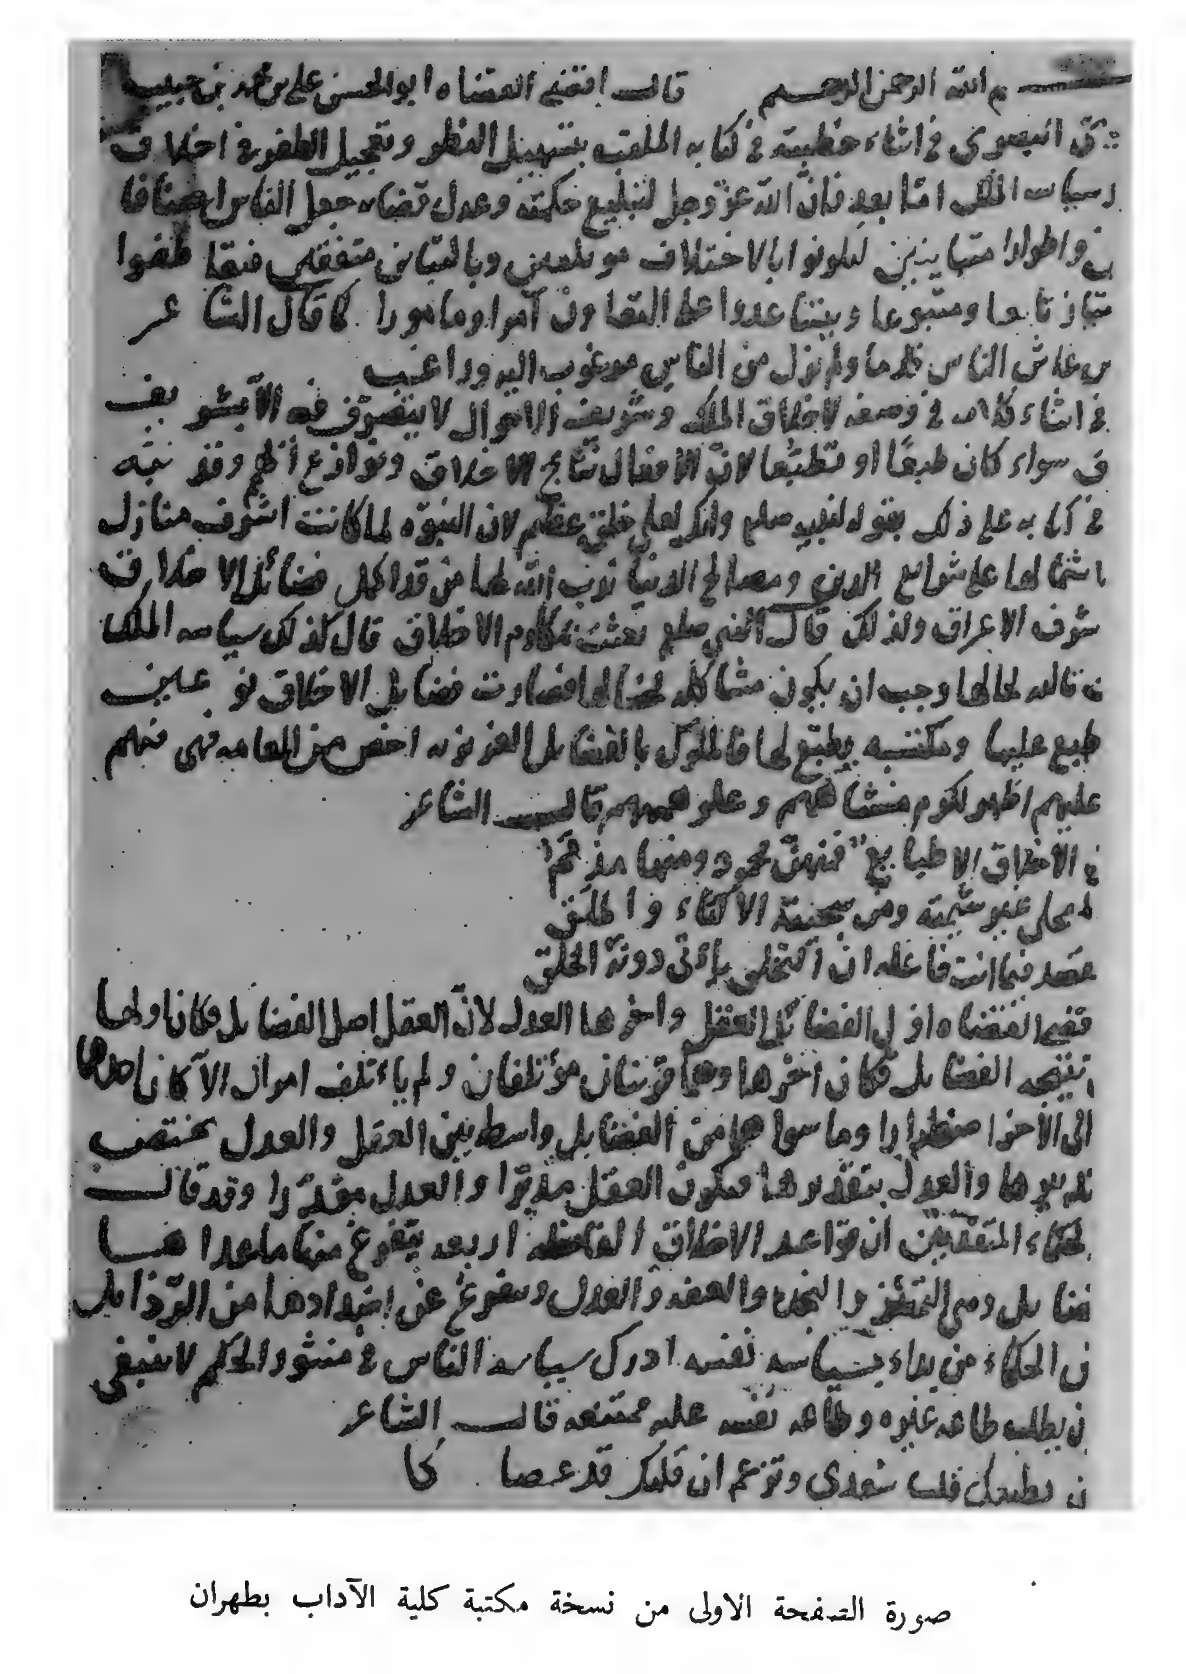 م الله الرحمن الرحيم قال اقضى القضاه ابو الحسن على بن محمد بن حبيب
البصرى فى اثناء خطبته فى كتابه الملقب بتسهيل النظر وتعجيل الظفر فى اخلاق
وسياسه الملك امّا بعد فانّ الله عزّ وجل لبليغ حكمته وعدل قضائه جعل الناس اصنافا
ن واطوارا متباينين ليكونوا بالاختلاف مؤتلفين وبالتباين متفقين فيتعاطفوا
تابعا ومتبوعا ويتساعدوا على التعاون آمرا ومامورا كما قال الشاعر
عاش الناس قدما ولم يزل من الناس مرغوب اليه وراغب
فى اثناء كلامه فى وصفه لاخلاق الملك وشريف الاحوال لا يتصرّف فيه الا بشريف
سواء كان طبعًا او تطبّعا لانّ الافعال نتائج الاخلاق ونوازع الهمم وقد نبّه
فى كتابه على ذلك بقوله لنبيه صلعم وانك لعلى خلق عظيم لان النبوّه لما كانت اشرف منازل
اشتمالها على شرائع الدين ومصالح الدنيا ندب الله لها من قد اكمل فضائل الاخلاق
شرف الاعراق ولذلك قال النبى صلعم بعثت بمكارم الاخلاق قال كذلك سياسه الملك
تاليه لحالها وجب ان يكون مشاكله لخصالها فصارت فضايل الاخلاق نوعين
طبع عليها ومكتسبه يطبّع لها فالملوك بالفضايل الغريزيه اخص من العامه فهى فيهم
عليهم اظهر لكرم منشاهم وعلو هممهم قال الشاعر
الاخلاق الا طبايع فمنهنّ محمود ومنها مذمّم
غير شيمته ومن سجيته الاكثار والملق
فيما انت فاعله ان التخلق ياءتى دونه الخلق
اقضى القضاه اولى الفضائل العقل واخرها العدل لانّ العقل اصل الفضايل فكان اولها
نتيجه الفضايل فكان آخرها وهما قرينان مؤتلفان ولم ياءتلف امران الا كان احدهما
الى الآخر اضطرارا وما سواهما من الفضايل واسطه بين العقل والعدل يختص
بتدبيرها والعدل بتقديرها فيكون العقل مدبّرا والعدل مقدّرا وقد قال
الحكماء المتقدّمين ان قواعد الاخلاق الفاضله اربعه يتفرّع منها ما عداها
فضايل وهى التمييز والنجده والعفه والعدل ويتفرّع عن اضدادها من الرّذايل
الحكماء من بداء بسياسه نفسه ادرك سياسه الناس فى منثور الحكم لا ينبغى
ن يطلب طاعه غيره وطاعه نفسه عليه ممتنعه قال الشاعر
يطيعك قلب سعدى وتزعم ان قلبك قد عصاكا
صورة الصفحة الاولى من نسخة مكتبة كلية الآداب بطهران